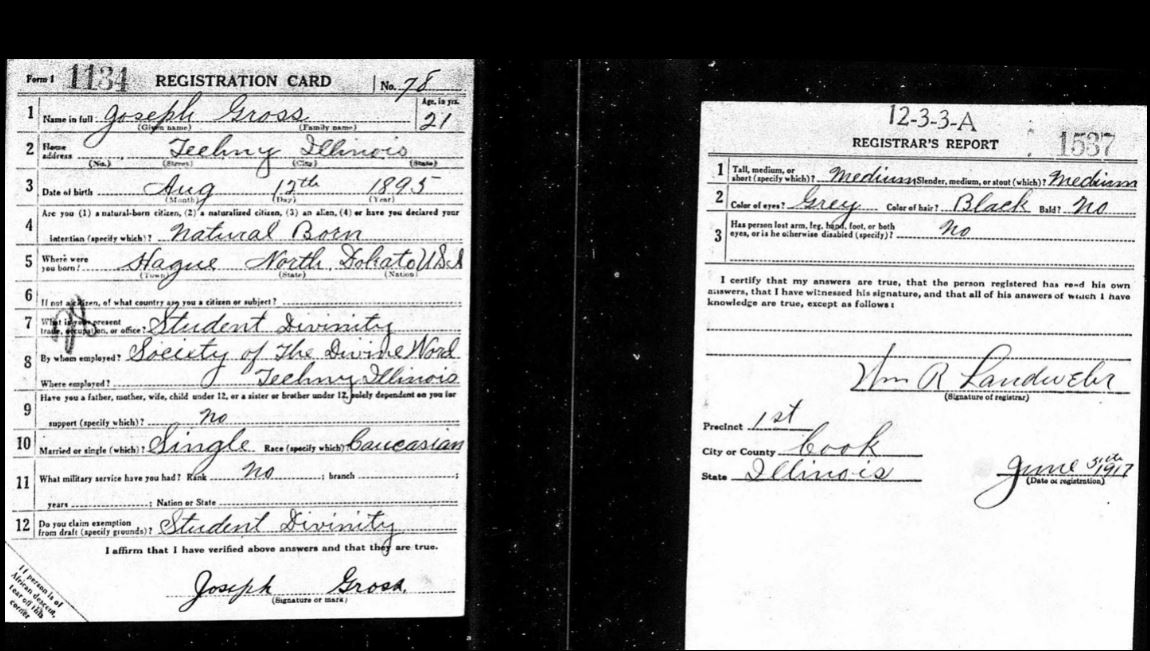 Form 1 1134 REGISTRATION CARD No. 78
1 Name in full Joseph Gross Age, in yrs. 21
(Given name) (Family name)
2 Home address Techny Illinois
(No.) (Street) (City) (State)
3 Date of birth Aug 12th 1895
(Month) (Day) (Year)
4 Are you (1) a natural-born citizen, (2) a naturalized citizen, (3) an alien, (4) or have you declared your
intention (specify which)? Natural Born
5 Where were you born? Hague North Dokato U S A
(Town) (State) (Nation)
6 If not a citizen, of what country are you a citizen or subject?
7 What is your present trade, occupation, or office? Student Divinity
8 By whom employed? Society of The Divine Word
Where employed? Techny Illinois
9 Have you a father, mother, wife, child under 12, or a sister or brother under 12, solely dependent on you for
support (specify which)? No
10 Married or single (which)? Single Race (specify which)? Caucasian
11 What military service have you had? Rank No ; branch ;
years ; Nation or State
12 Do you claim exemption from draft (specify grounds)? Student Divinity
I affirm that I have verified above answers and that they are true.
Joseph Gross.
(Signature or mark)
If person is of
African descent,
tear off this
corner
12-3-3-A
REGISTRAR'S REPORT 1537
1 Tall, medium, or short (specify which)? Medium Slender, medium, or stout (which)? Medium
2 Color of eyes? Grey Color of hair? Black Bald? No
3 Has person lost arm, leg, hand, foot, or both eyes, or is he otherwise disabled (specify)? No
I certify that my answers are true, that the person registered has read his own
answers, that I have witnessed his signature, and that all of his answers of which I have
knowledge are true, except as follows:
Wm R Landwehr
(Signature of registrar)
Precinct 1st
City or County Cook
State Illinois
June 1917
(Date of registration)